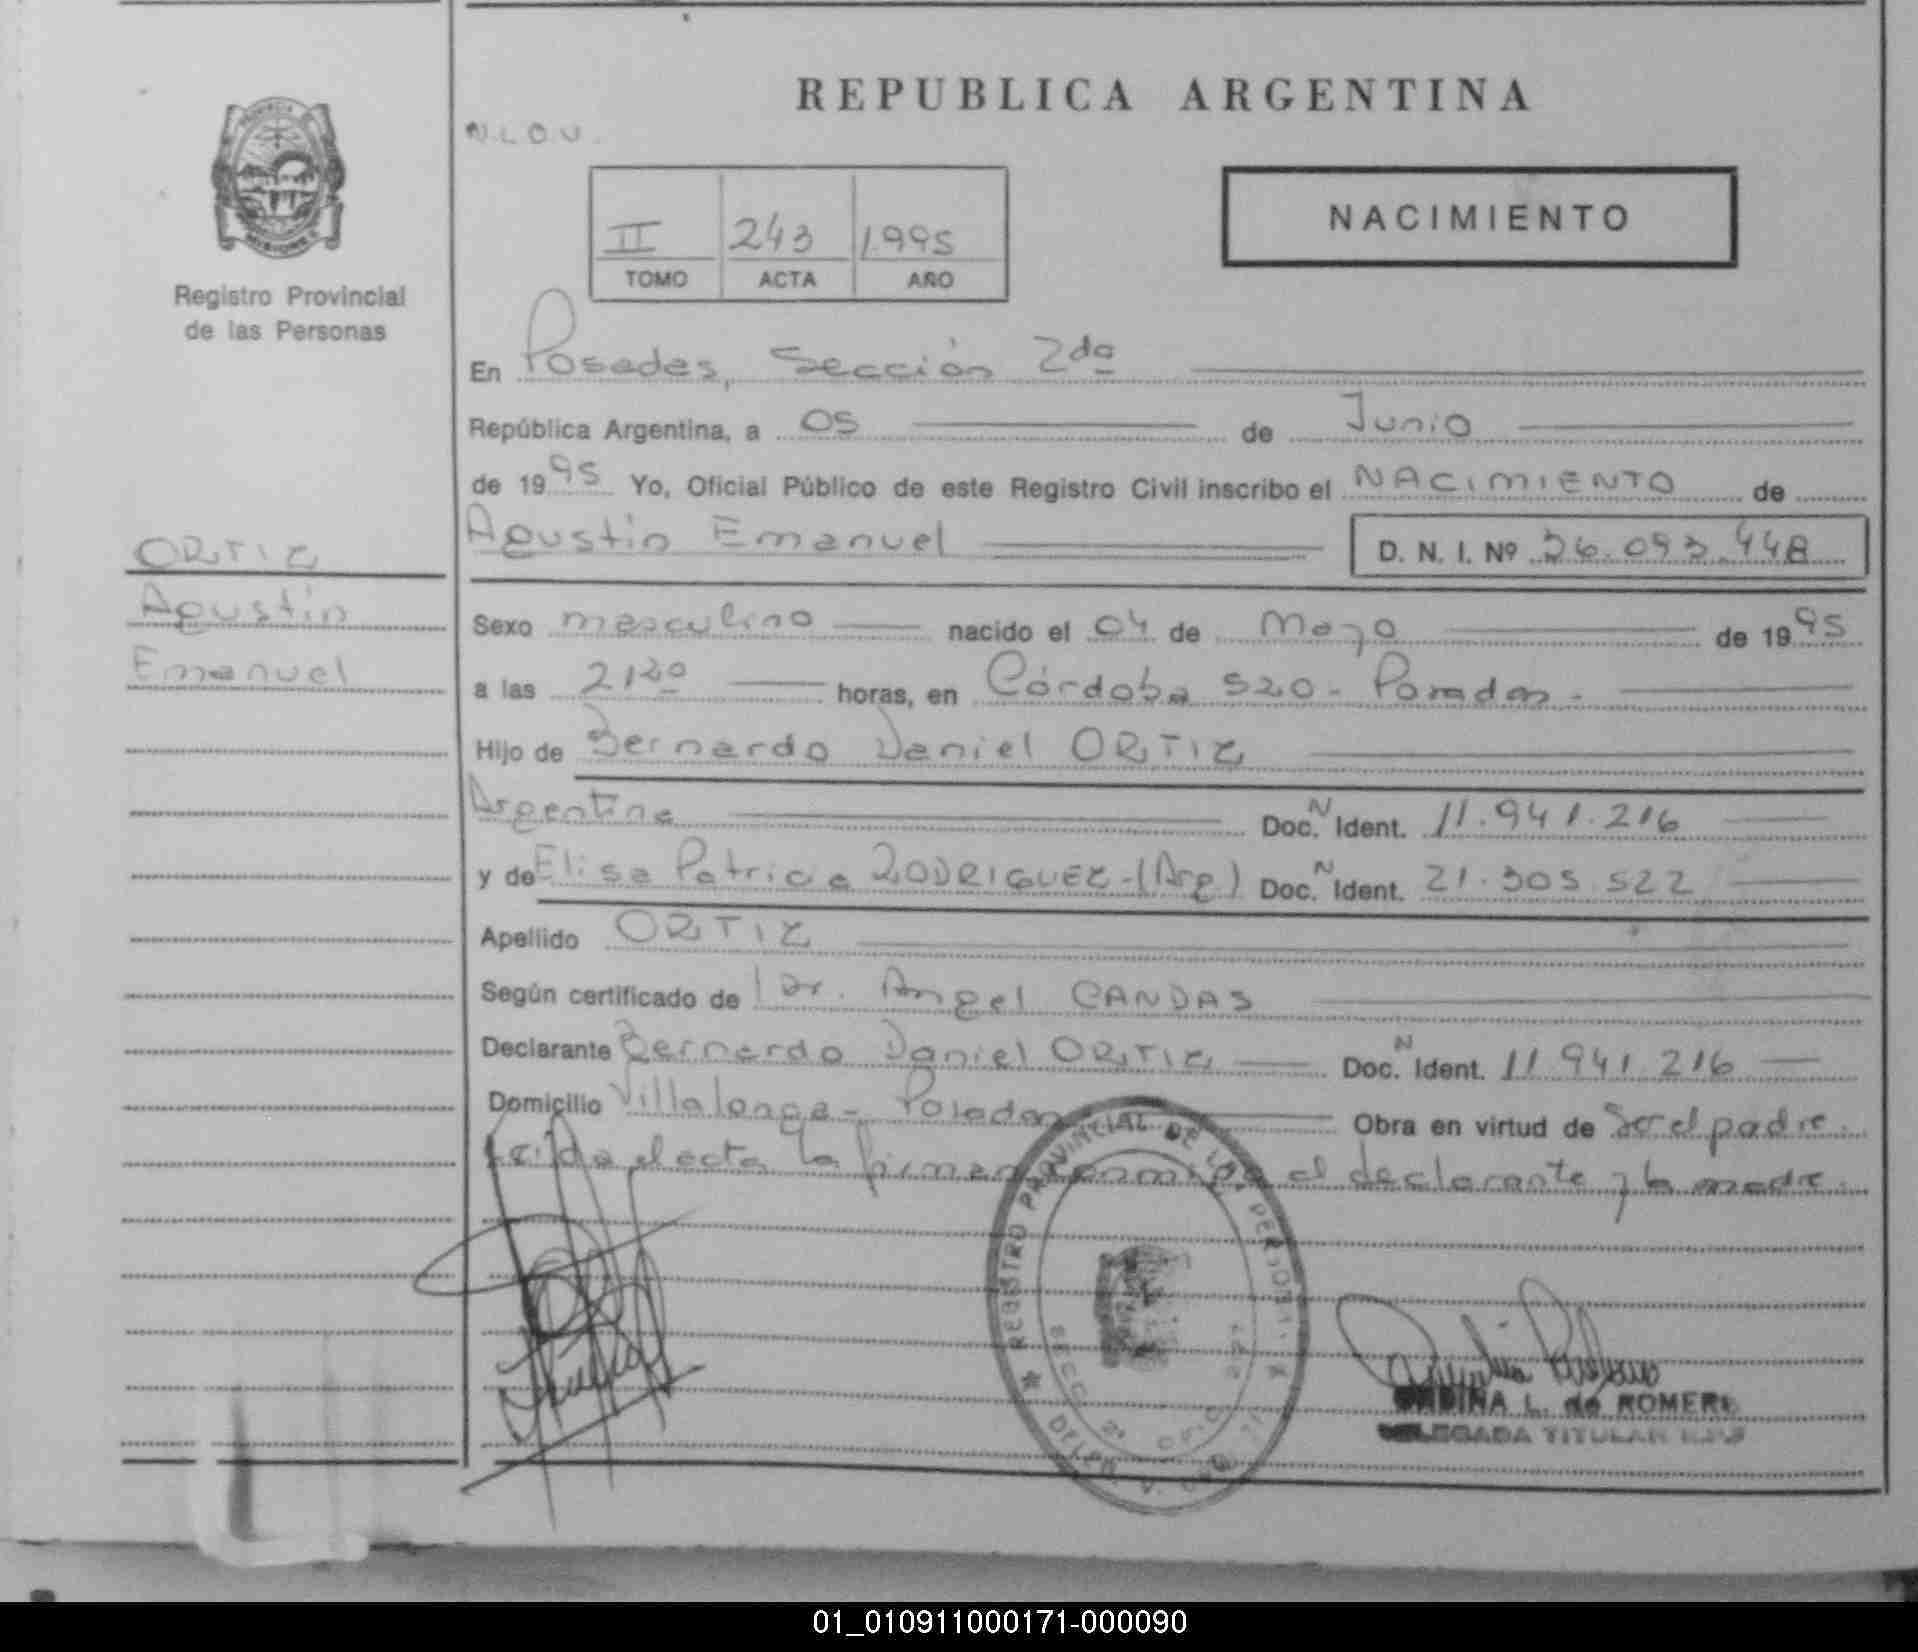 REPUBLICA ARGENTINA
N.L.O.U.
NACIMIENTO
II 243 1995
TOMO ACTA AÑO
Registro Provincial
de las Personas
En Posadas, Sección 2da
República Argentina, a 05 de Junio
de 1995 Yo, Oficial Público de este Registro Civil inscribo el NACIMIENTO de
Agustín Emanuel D. N. I. Nº 36.093.448
ORTIZ
Agustín
Emanuel
Sexo masculino nacido el 04 de Mayo de 1995
a las horas, en Córdoba 520 - Posadas -
Hijo de Bernardo Daniel ORTIZ
Argentina Doc. N Ident. 11.941.216
y de Elisa Patricia RODRIGUEZ - (Arg) Doc. N Ident. 21.305.522
Apellido ORTIZ
Según certificado de Dr. Angel CANDAS
Declarante Bernardo Daniel ORTIZ Doc. N Ident. 11.941.216
Domicilio Villalonga - Posadas Obra en virtud de Ser el padre.
Leída el acta la firman conmigo el declarante y la madre.
REGISTRO PROVINCIAL DE LAS PERSONAS
SECC. 2ª
L. de ROMERO
DELEGADA TITULAR R.P.P.
01_010911000171-000090